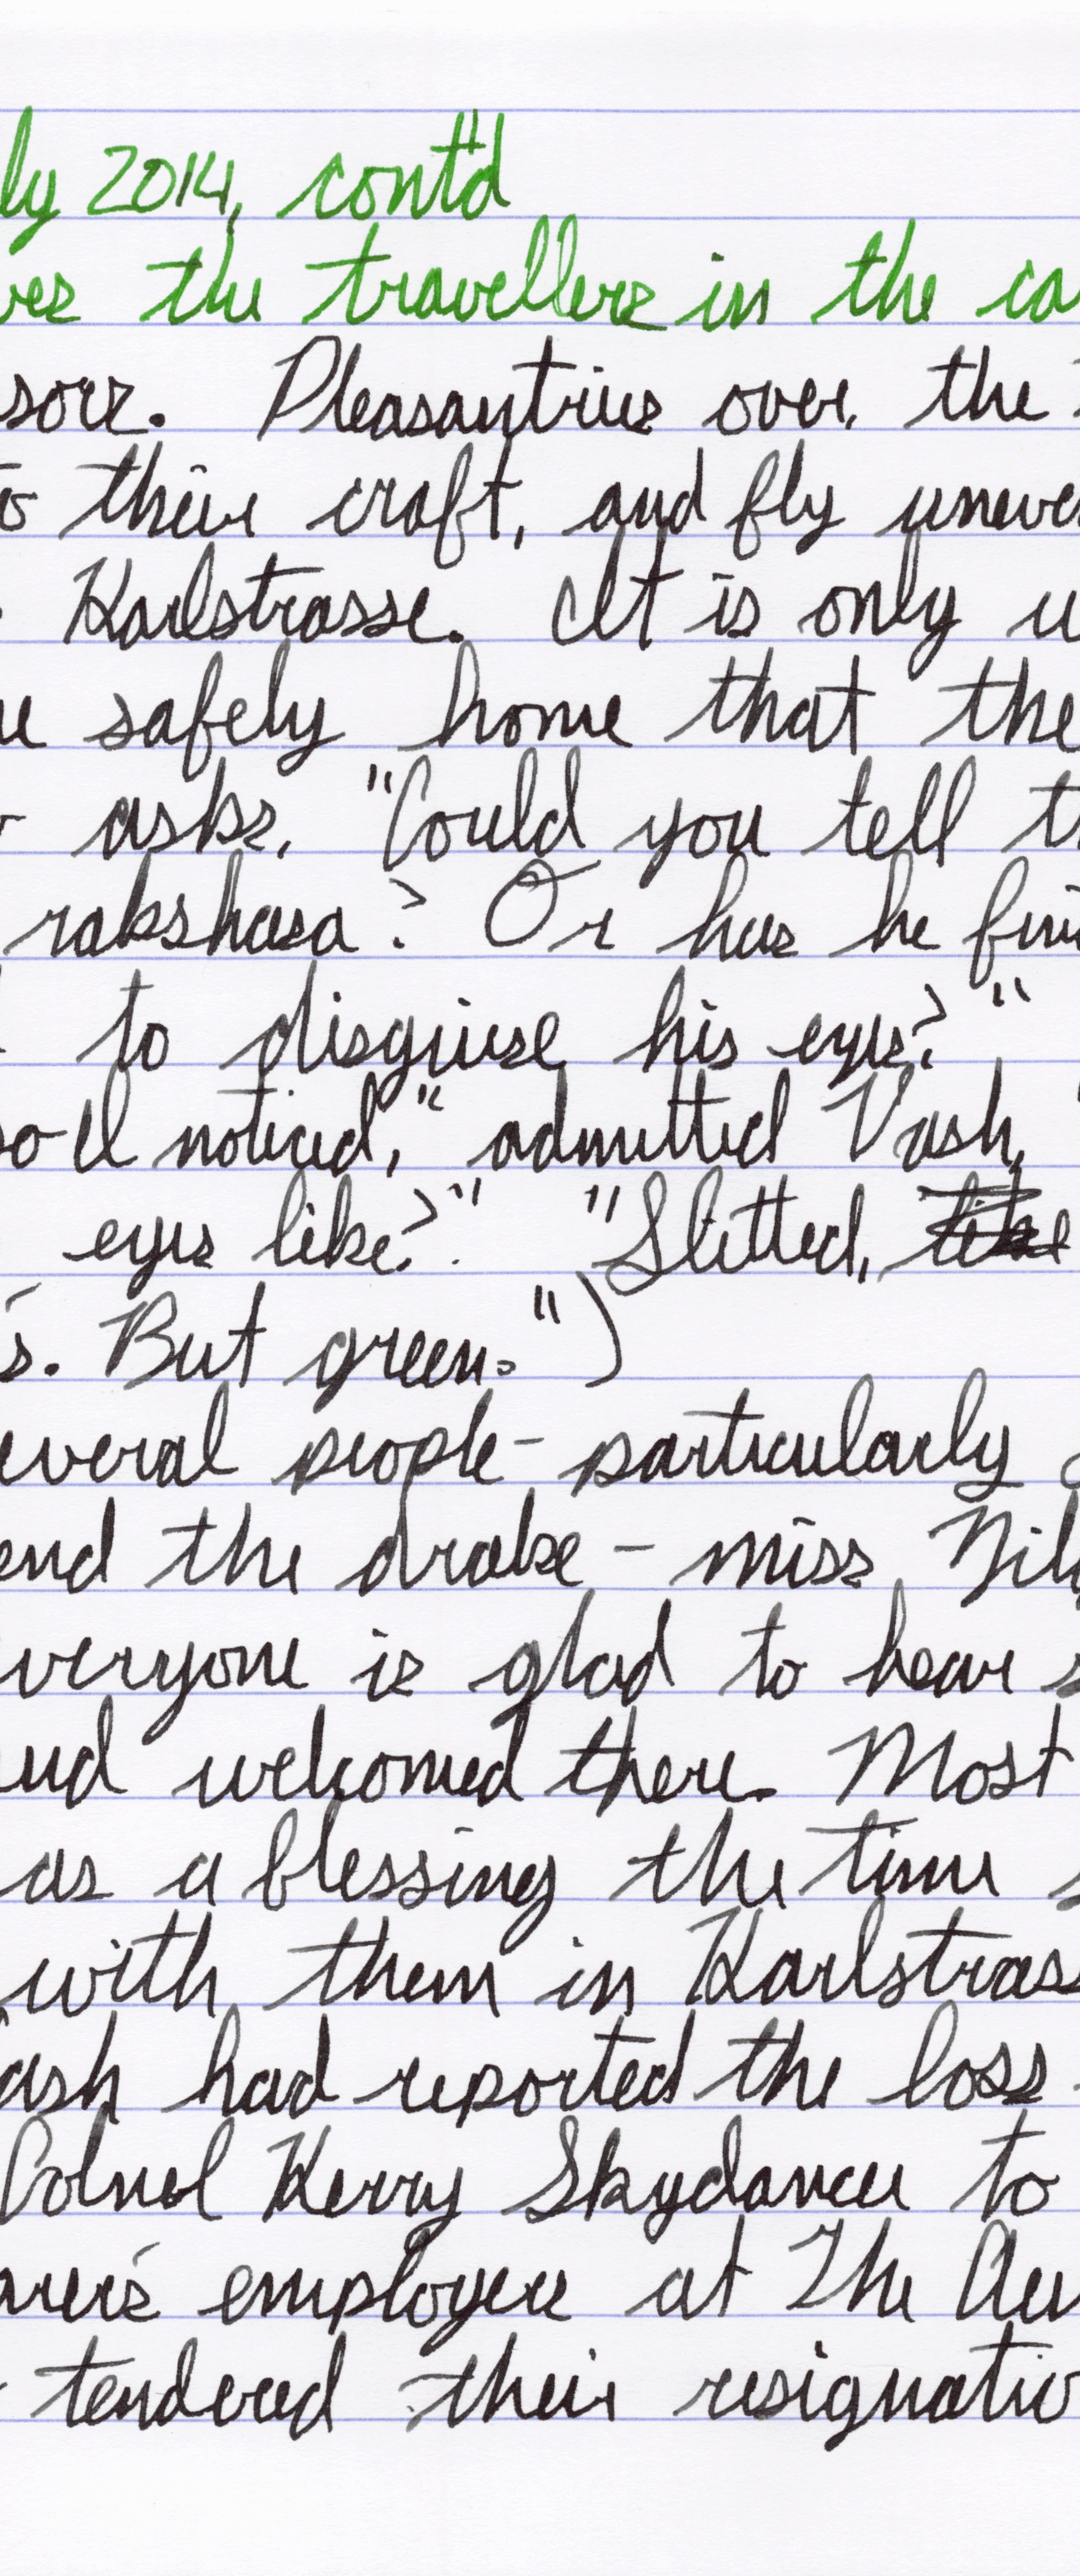 ly 2014, cont'd
ves the travellers in the ca
sors. Pleasantries over, the
to their craft, and fly uneve
Karlstrasse. It is only u
safely home that the
asks, "Could you tell t
rakshasa? Or has he fin
to disguise his eyes?"
so I noticed," admitted Vash,
eyes like?" "Slitted, like
's. But green.")
everal people - particularly
end the drake - miss Nil
veryone is glad to hear s
nd welcomed there. Most
as a blessing the time s
with them in Karlstras
ash had reported the loss
Colnel Kerry Skydancer to
ancer's employer at The Aer
tendered their resignatio